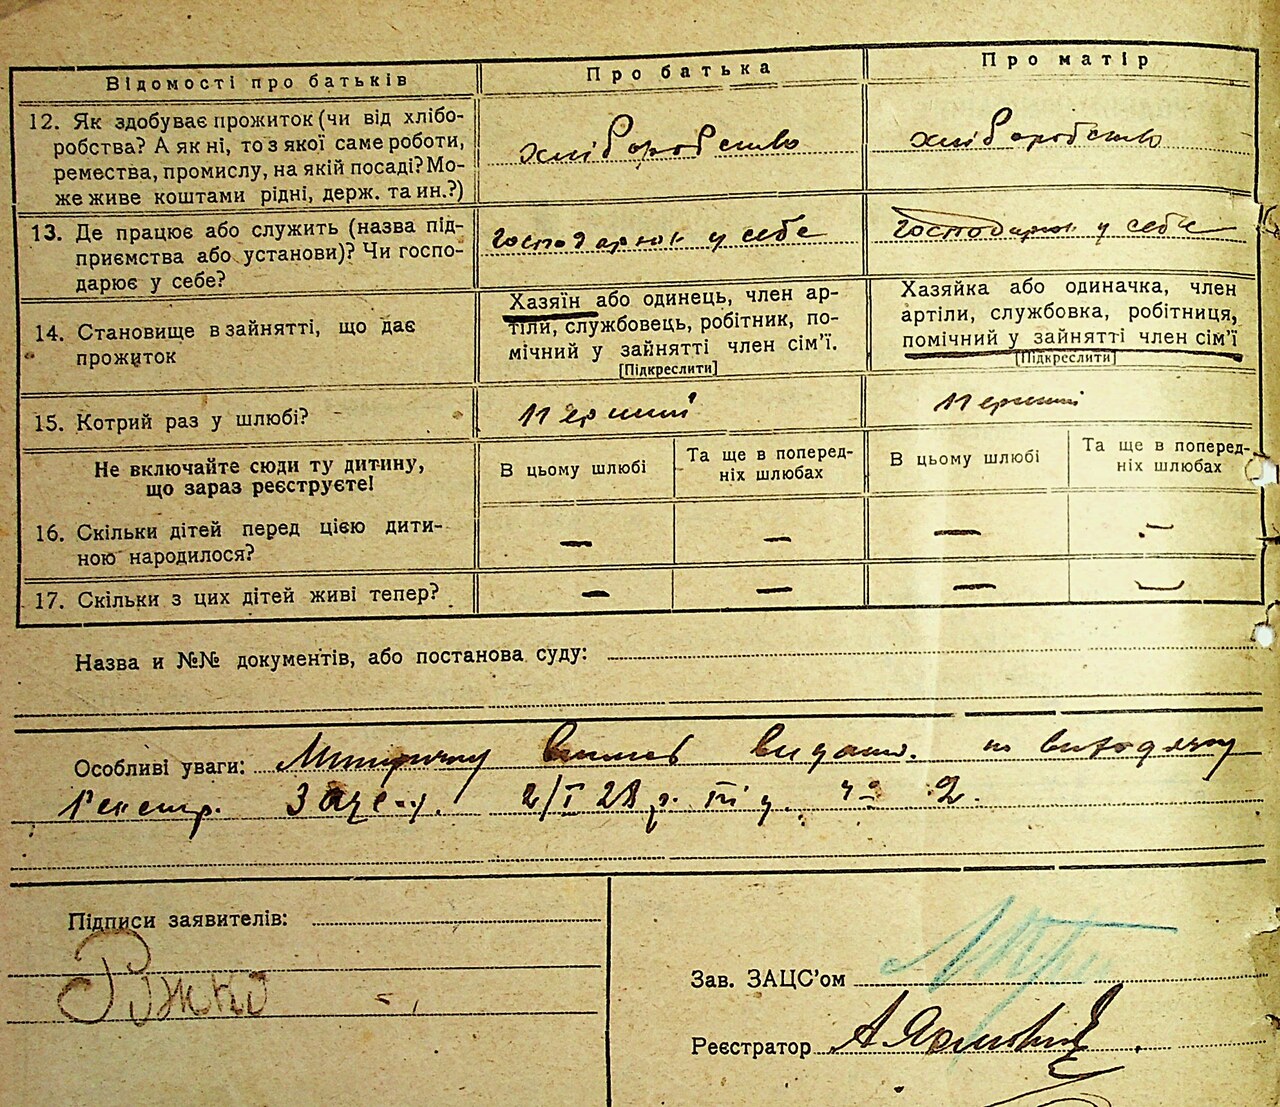 Відомості про батьків
Про батька
Про матір
12. Як здобуває прожиток (чи від хлібо-
робства? А як ні, то з якої саме роботи,
ремества, промислу, на якій посаді? Мо-
же живе коштами рідні, держ. та ин.?)
хліборобство
хліборобство
13. Де працює або служить (назва під-
приємства або установи)? Чи госпо-
дарює у себе?
господарює у себе
господарює у себе
14. Становище в зайнятті, що дає
прожиток
Хазяїн або одинець, член ар-
тіли, службовець, робітник, по-
мічний у зайнятті член сім'ї.
[Підкреслити]
Хазяйка або одиначка, член
артіли, службовка, робітниця,
помічний у зайнятті член сім'ї
[Підкреслити]
15. Котрий раз у шлюбі?
перший
перший
Не включайте сюди ту дитину,
що зараз реєструєте!
В цьому шлюбі
Та ще в поперед-
ніх шлюбах
В цьому шлюбі
Та ще в поперед-
ніх шлюбах
16. Скільки дітей перед цією дити-
ною народилося?
— — — —
17. Скільки з цих дітей живі тепер?
— — — —
Назва и №№ документів, або постанова суду:
Особливі уваги: видано. по
2/I 28 р. 2.
Підписи заявителів:
Рижко
Зав. ЗАЦС'ом
Реєстратор А.